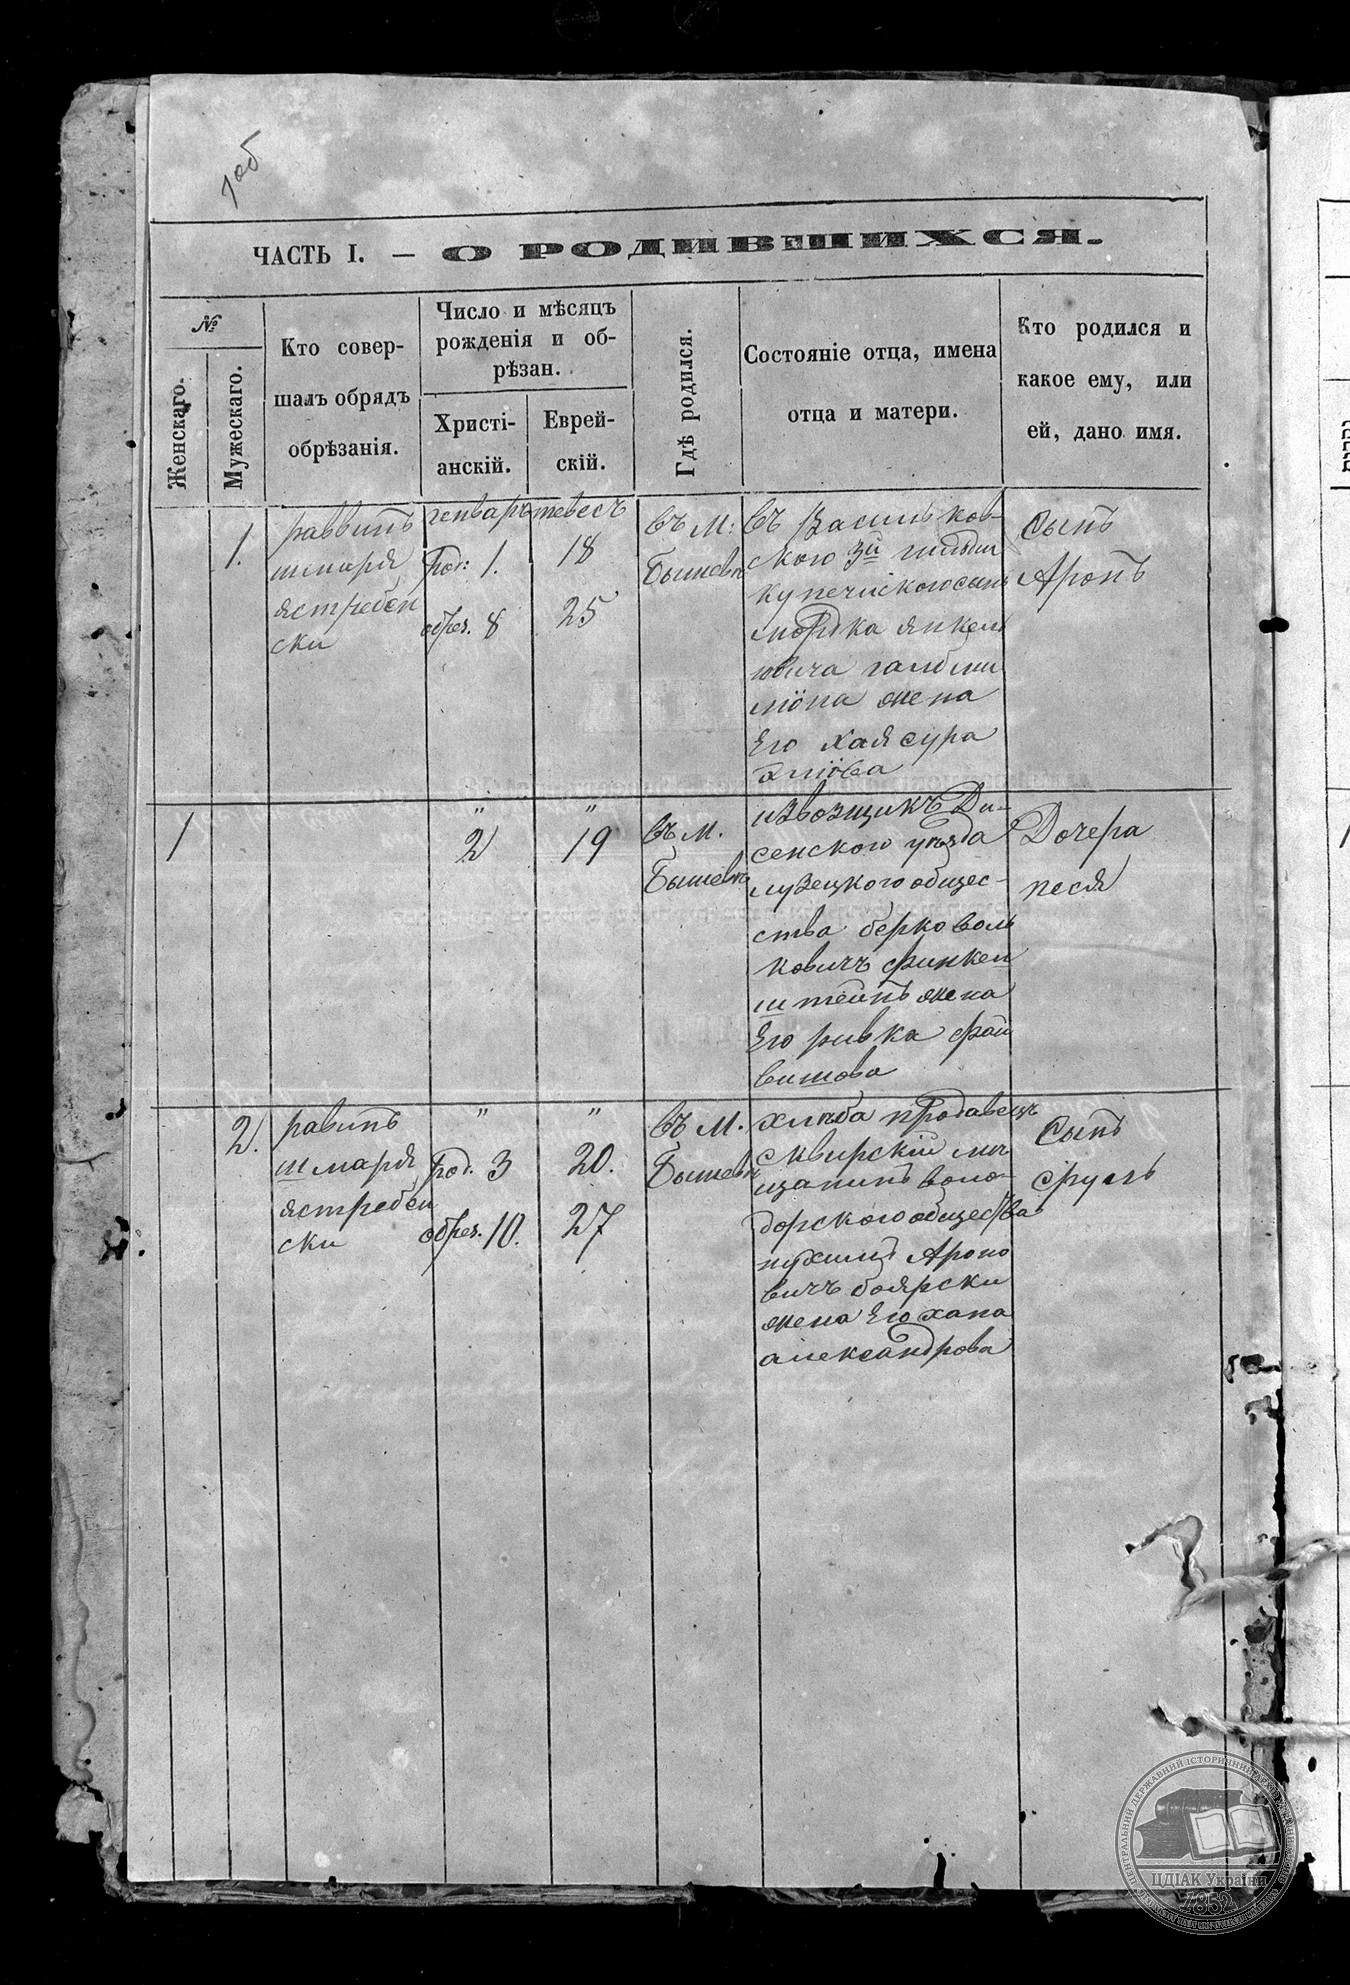 1об
ЧАСТЬ I. — О РОДИВШИХСЯ.
№
Женскаго.
Мужескаго.
Кто совер-
шалъ обрядъ
обрѣзанія.
Число и мѣсяцъ
рожденія и об-
рѣзан.
Христі-
анскій.
Еврей-
скій.
Гдѣ родился.
Состояніе отца, имена
отца и матери.
Кто родился и
какое ему, или
ей, дано имя.
1.
раввинъ
шмарія
ястребен
ски
генваръ
род: 1.
обрез. 8
тевесъ
18
25
въ м:
Бышевѣ
въ Васильков-
ского 3й гильдии
купечискогосынъ
мордка янкел
овича
жена
Его хая сура
Сынъ
Аронъ
1
"
2
"
19
въ м.
Бышевѣ
извозщикъ Ди-
сенского уѣзда
лузецкого общес-
ства берко воль
ковичъ финкел
штейнъ жена
Его ривка фай
вишова
Дочера
песя
2.
равинъ
шмарія
ястребен
ски
"
род. 3
обрез. 10.
"
20.
27
въ м.
Бышевѣ
хлѣба продавецъ
сквирскій мѣ
щанинъ воло-
дорского общества
Ароно
вичъ боярски
жена Его хана
александрова
Сынъ
сруль
ЦЕНТРАЛЬНИЙ ДЕРЖАВНИЙ ІСТОРИЧНИЙ АРХІВ
ЦДІАК України
1852